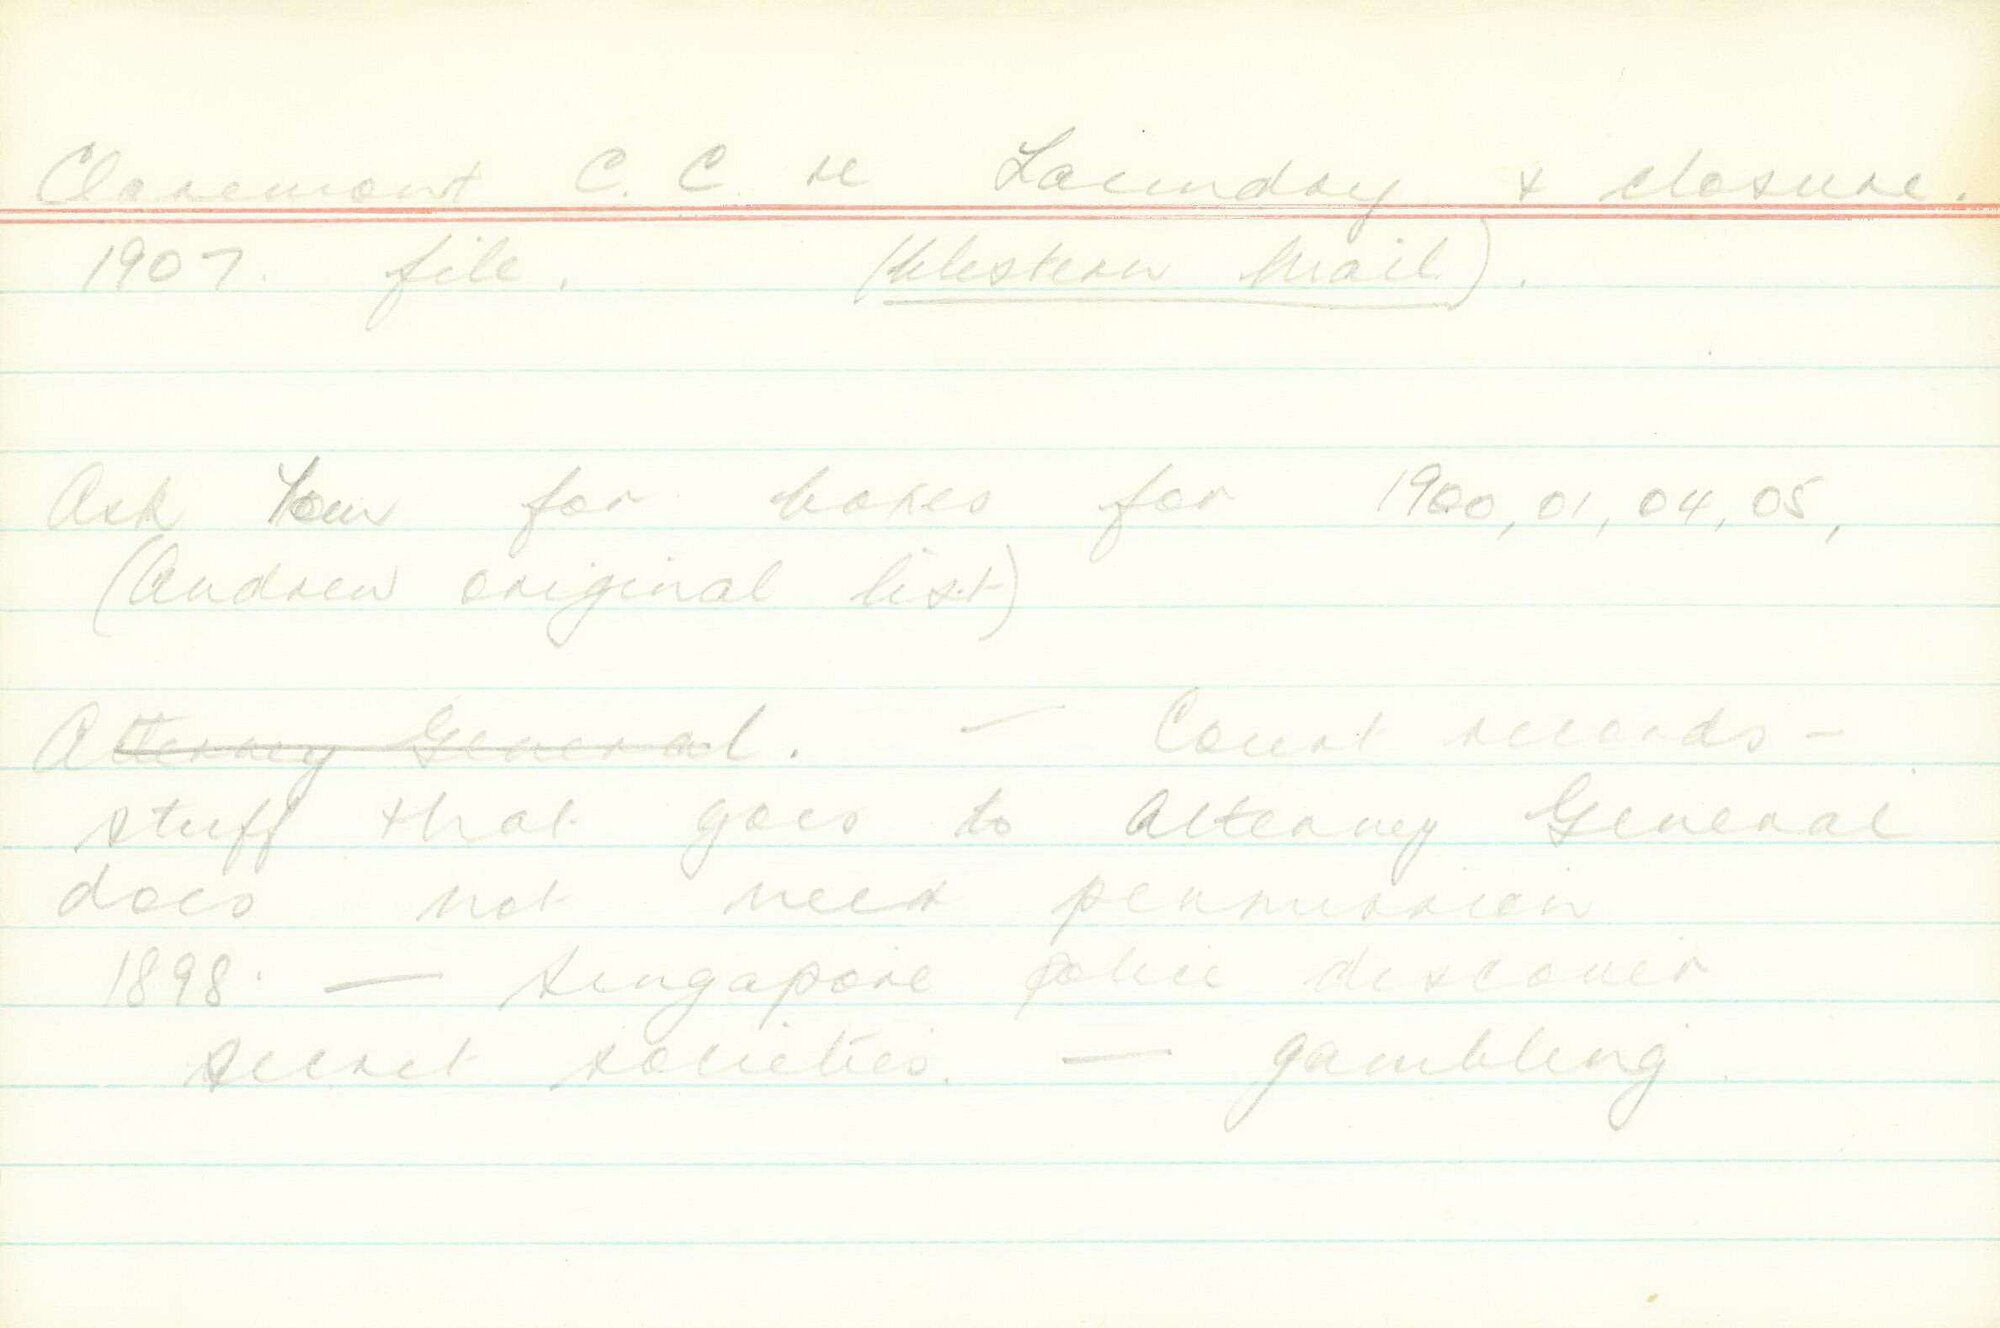 Claremont C. C re Laundry & closure.
1907. file. (Western Mail).
Ask Tom for boxes for 1900, 01, 04, 05,
(Andrew original list)
Attorney General. — Court records -
stuff that goes to Attorney General
does not need permission
1898. — Singapore police discover
secret societies. — gambling